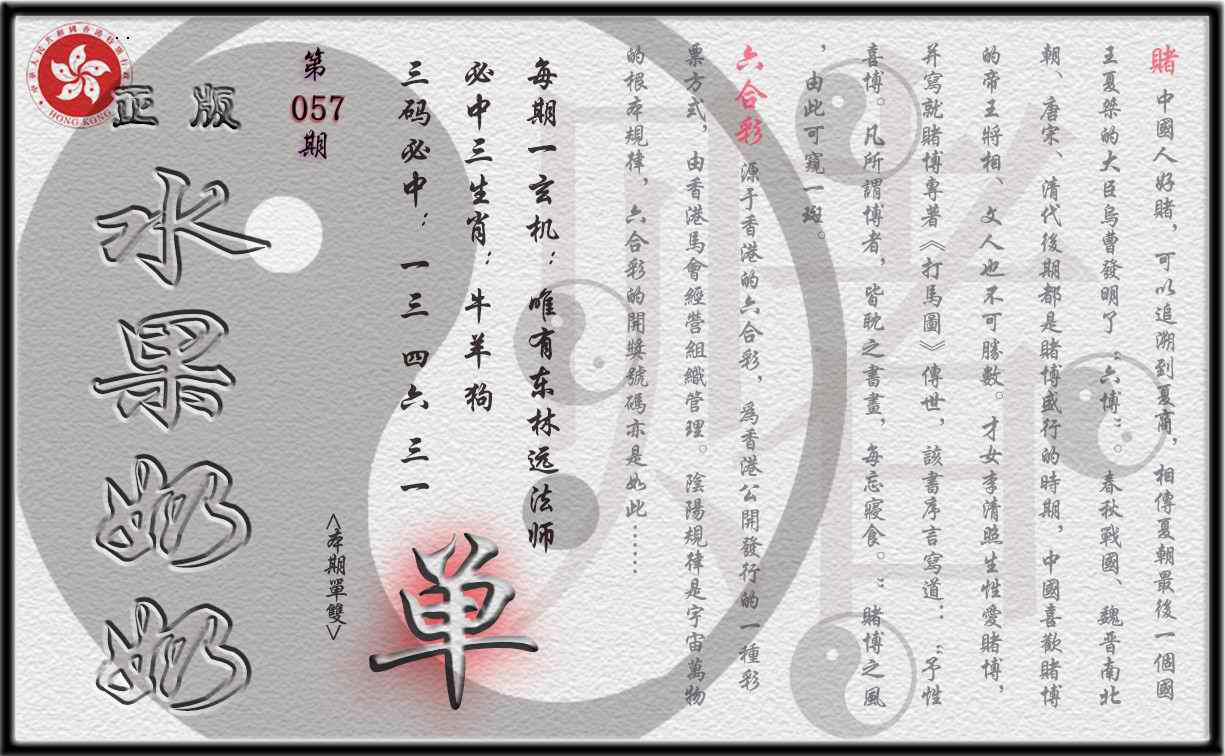 賭 中國人好賭，可以追溯到夏商，相傳夏朝最後一個國
王夏桀的大臣烏曹發明了“六博”。春秋戰國、魏晋南北
朝、唐宋、清代後期都是賭博盛行的時期，中國喜歡賭博
的帝王將相、文人也不可勝數。才女李清照生性愛賭博，
并寫就賭博專著《打馬圖》傳世，該書序言寫道：“予性
喜博。凡所謂博者，皆耽之書畫，每忘寢食。”賭博之風
，由此可窺一斑。
六合彩 源于香港的六合彩，爲香港公開發行的一種彩
票方式，由香港馬會經營組織管理。陰陽規律是宇宙萬物
的根本規律，六合彩的開獎號碼亦是如此……
每期一玄机：唯有东林远法师
必中三生肖：牛羊狗
三码必中：一三 四六 三一
单
<本期單雙>
第
057
期
正版
水果奶奶
中華人民共和國香港特別行政區
HONG KONG